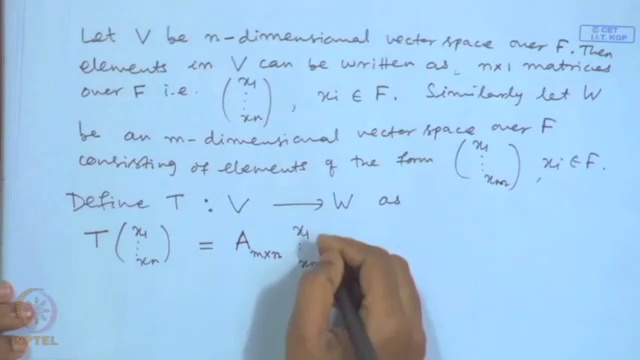 © CET
I.I.T. KGP
Let V be n-dimensional vector space over F. Then
elements in V can be written as, n×1 matrices
over F i.e. (x1 ⋮ xn), xi ∈ F. Similarly let W
be an m-dimensional vector space over F
consisting of elements of the form (x1 ⋮ xm), xi ∈ F.
Define T : V ⟶ W as
T (x1 ⋮ xn) = A m×n x1 ⋮
NPTEL